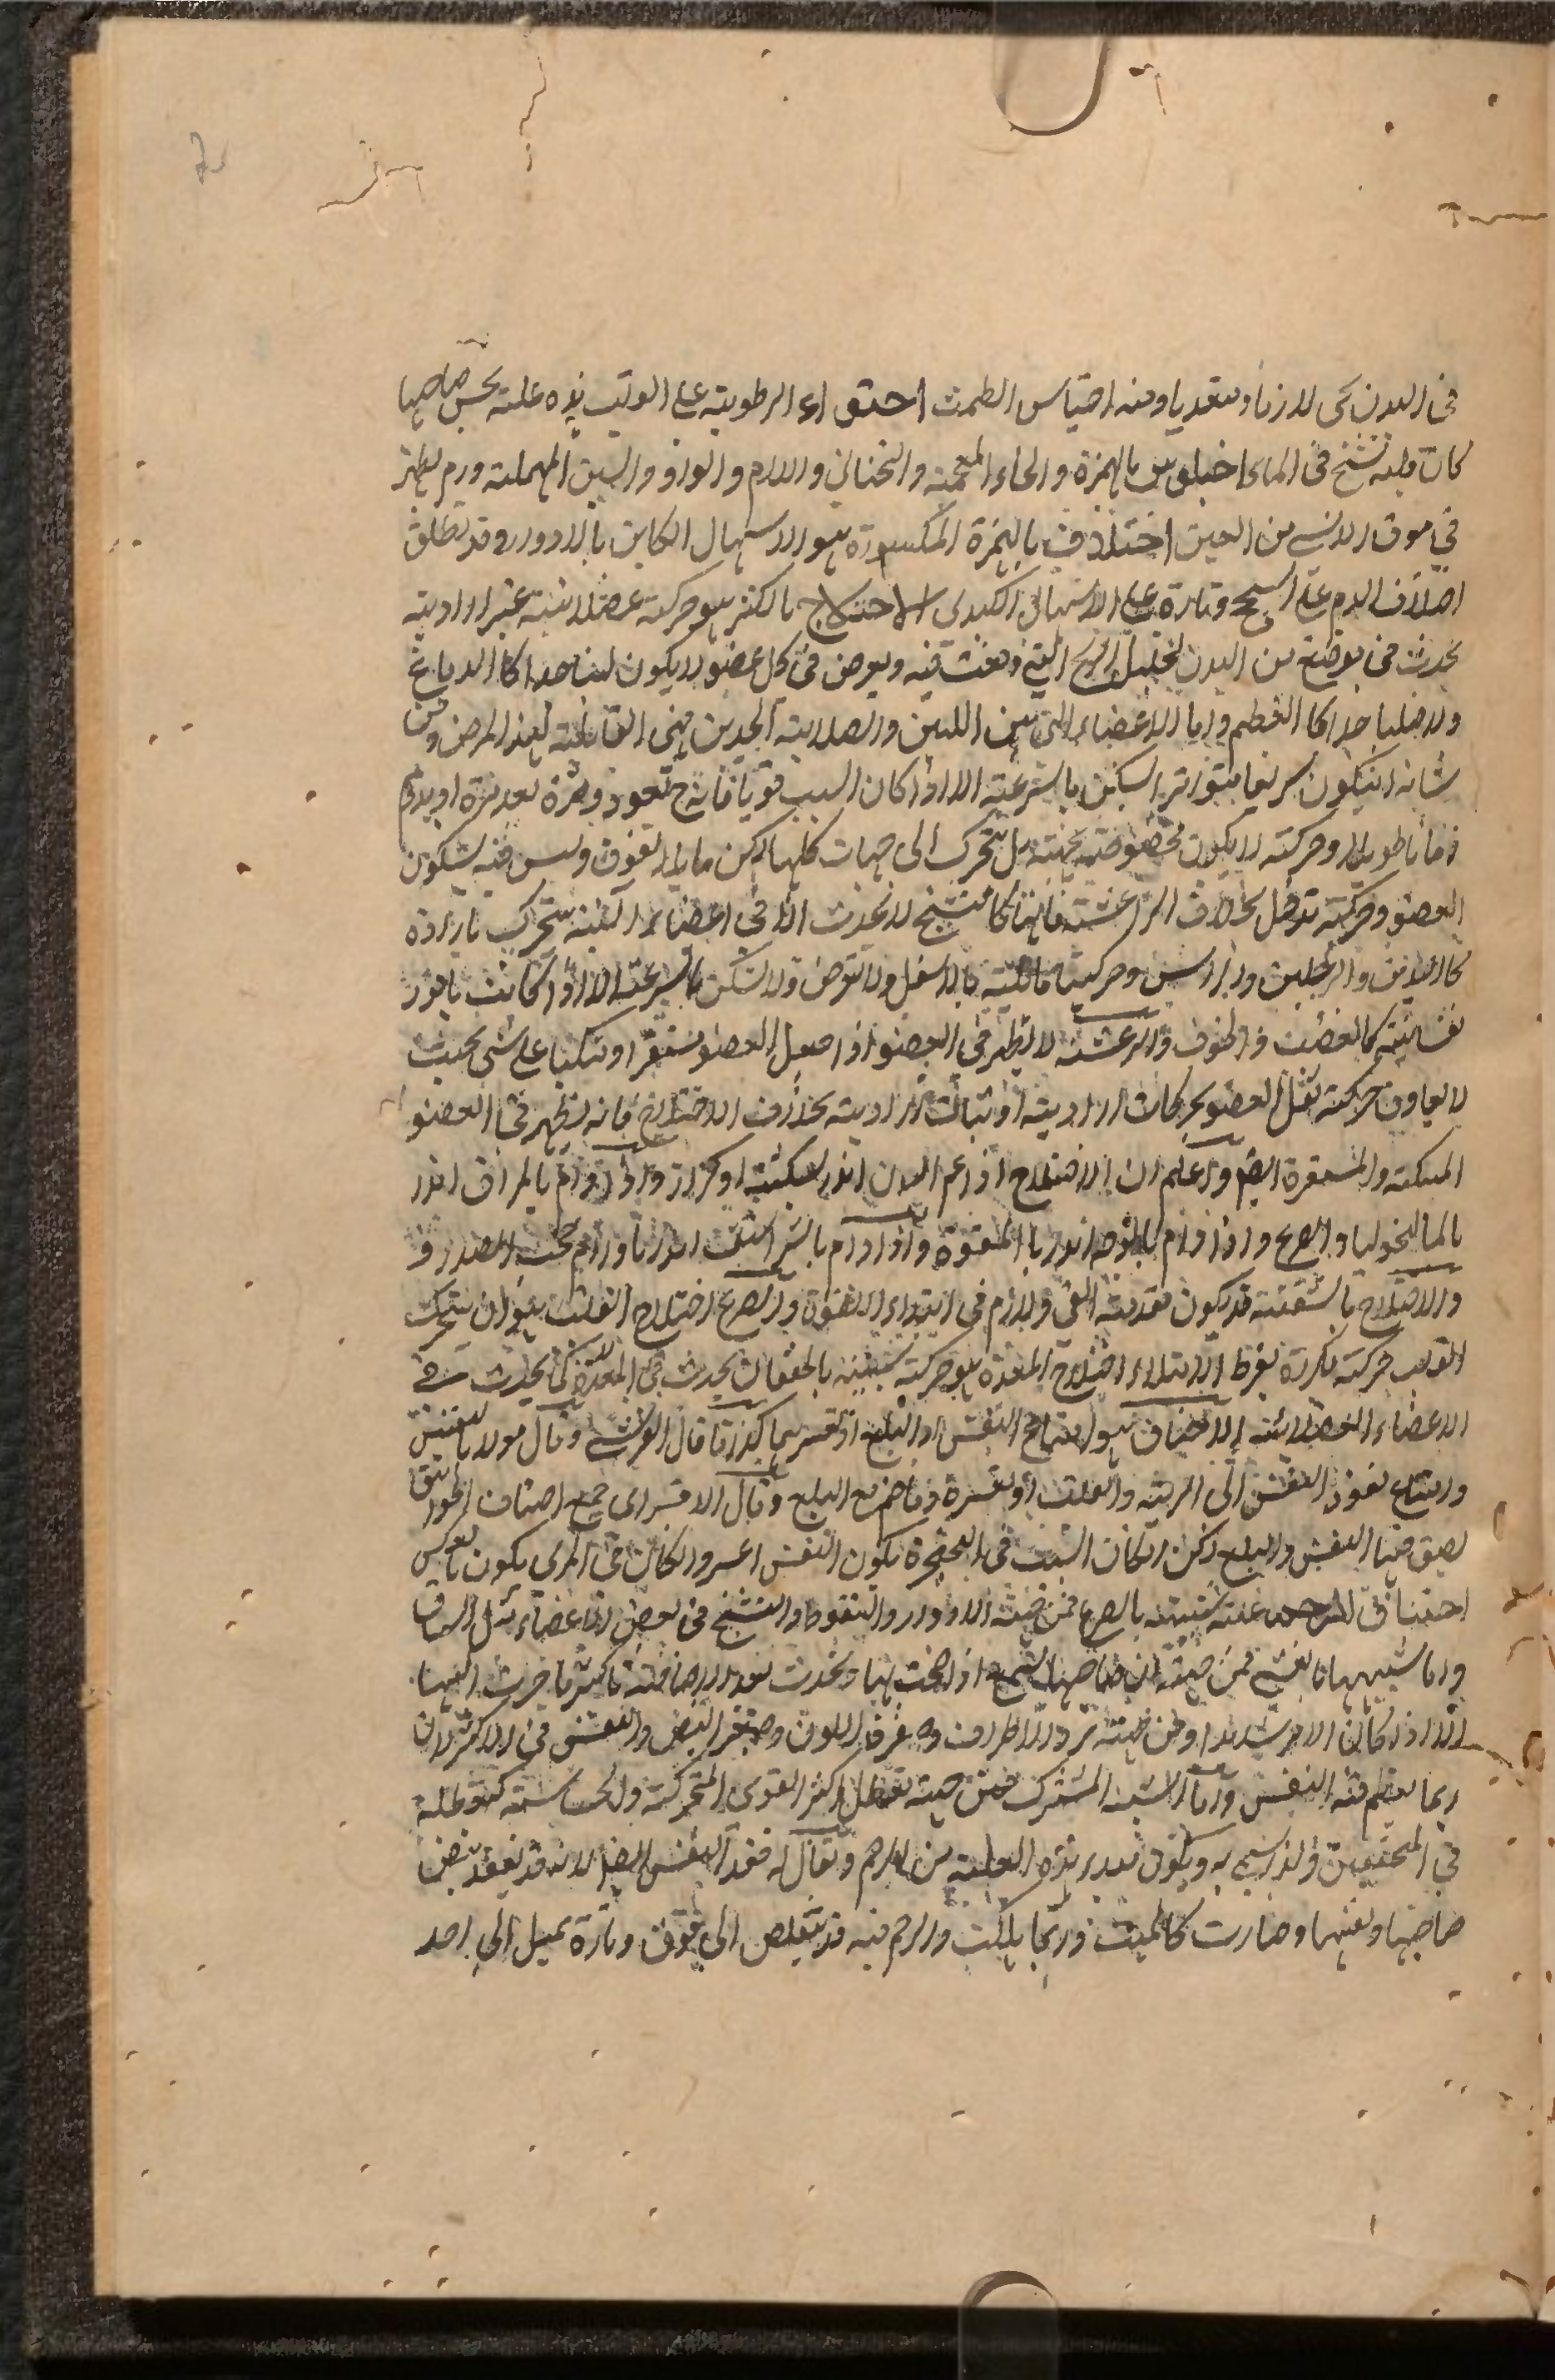 في البدن كى لازما ومتعديا ومنه احتباس الطمث احتواء الرطوبة على القلب هذه علة يحس صاحبها
كان قلبه تنشخ في الماء اخيلوس بالهمزة والخاء المعجمة والتحتاني واللام والواو والسين المهملة ورم يظهر
في موق الانسي من العين اختلاف بالهمزة المكسورة هو الاسهال الكاين بالادوار وقد يطلق
اختلاف الدم على السحج وتارة على الاسهال الكبدى الاختلاج بالكسر هو حركة عضلانية غير ارادية
يحدث في موضع من البدن الريح فيه ويعرض في كل عضو لا يكون لينا جدا كالدماغ
ولا صلبا جدا كالعظم واما الاعضاء التي بين اللين والصلابة فهى القابلة لهذا المرض ومن
شانه ان يكون سريعا متواترا يسكن بالسرعة الا اذا كان السبب قويا فانه ح يعود مرة بعد مرة او يدوم
زمانا طويلا وحركته لا يكون مخصوصة بجهة بل يتحرك الى جهات كلها لكن مايلا الفوق وليس فيه لسكون
العضو وحركته تدخل بخلاف الرعشة فانها كالتشنج لا تحدث الا في اعضاء آلية يتحرك بارادة
كاليدين والرجلين والراس وحركتها مائلة بالاسفل ولا تعرض ولا تسكن بالسرعة الا اذا كانت بامور
نفسانية كالغضب والخوف والرعشة لا تظهر في العضو اذا جعل العضو مستقرا او متكيا على شى بحيث
لا يعاوق حركته ثقل العضو بحركات ارادية او ثبات ارادية بخلاف الاختلاج فانه يظهر في العضو
المتكية والمستقرة ايضا واعلم ان الاختلاج اذا عم البدن انذر بسكتة او كزاز واذا دام بالمراق انذر
بالماليخوليا والصرع واذا دام بالوجه انذر باللقوة واذا دام بالشراسيف انذر باورام تحت الصدر و
والاختلاج بالشفة قد يكون مقدمة القئ ولازم في ابتداء اللقوة والصرع اختلاج القلب هو ان يتحرك
القلب حركة مكررة لفرط الامتلاء اختلاج المعدة هو حركة شبيهة بالخفقان يحدث في المعدة كما يحدث في
الاعضاء العضلانية الاختناق هو امتناع التنفس او البلع او تعسرهما كذا قال القرشى وقال مولانا نفيس
وامتناع نفوذ النفس الى الرية والقلب او تعسره مع البلع وقال الاقسراى جميع اصناف الخوانيق
يضيق فيها النفس والبلع لكن ان كان السبب في الحنجرة يكون التنفس اعسر وان كان في المرى يكون بالعكس
اختناق الرحم علة شبيهة بالصرع فمن جهة الادوار والسقوط والتشنج في بعض الاعضاء مثل الساق
واما شبهها بالغشى فمن جهة ان صاحبها يسمع اذا صحت بها ويحدث بعد الافاقة باكثر ما جرت اليها
الا اذا كان الامر شديدا ومن جهة برد الاطراف وصفرة اللون وصغر النبض والتنفس في الاكثر لان
ربما يعظم فيه النفس واما الشبه المشترك فمن جهة تعطل اكثر القوى المتحركة والحساسة كتعطله
في المختنقين ولذا سمى به ويكون مبدء هذه العلة من الرحم ويقال له فقد النفس ايضا لانه قد يفقد نبض
صاحبها ونفسها وصارت كالميت وربما هلكت والرحم فيه قد يتقلص الى فوق وتارة يميل الى احد